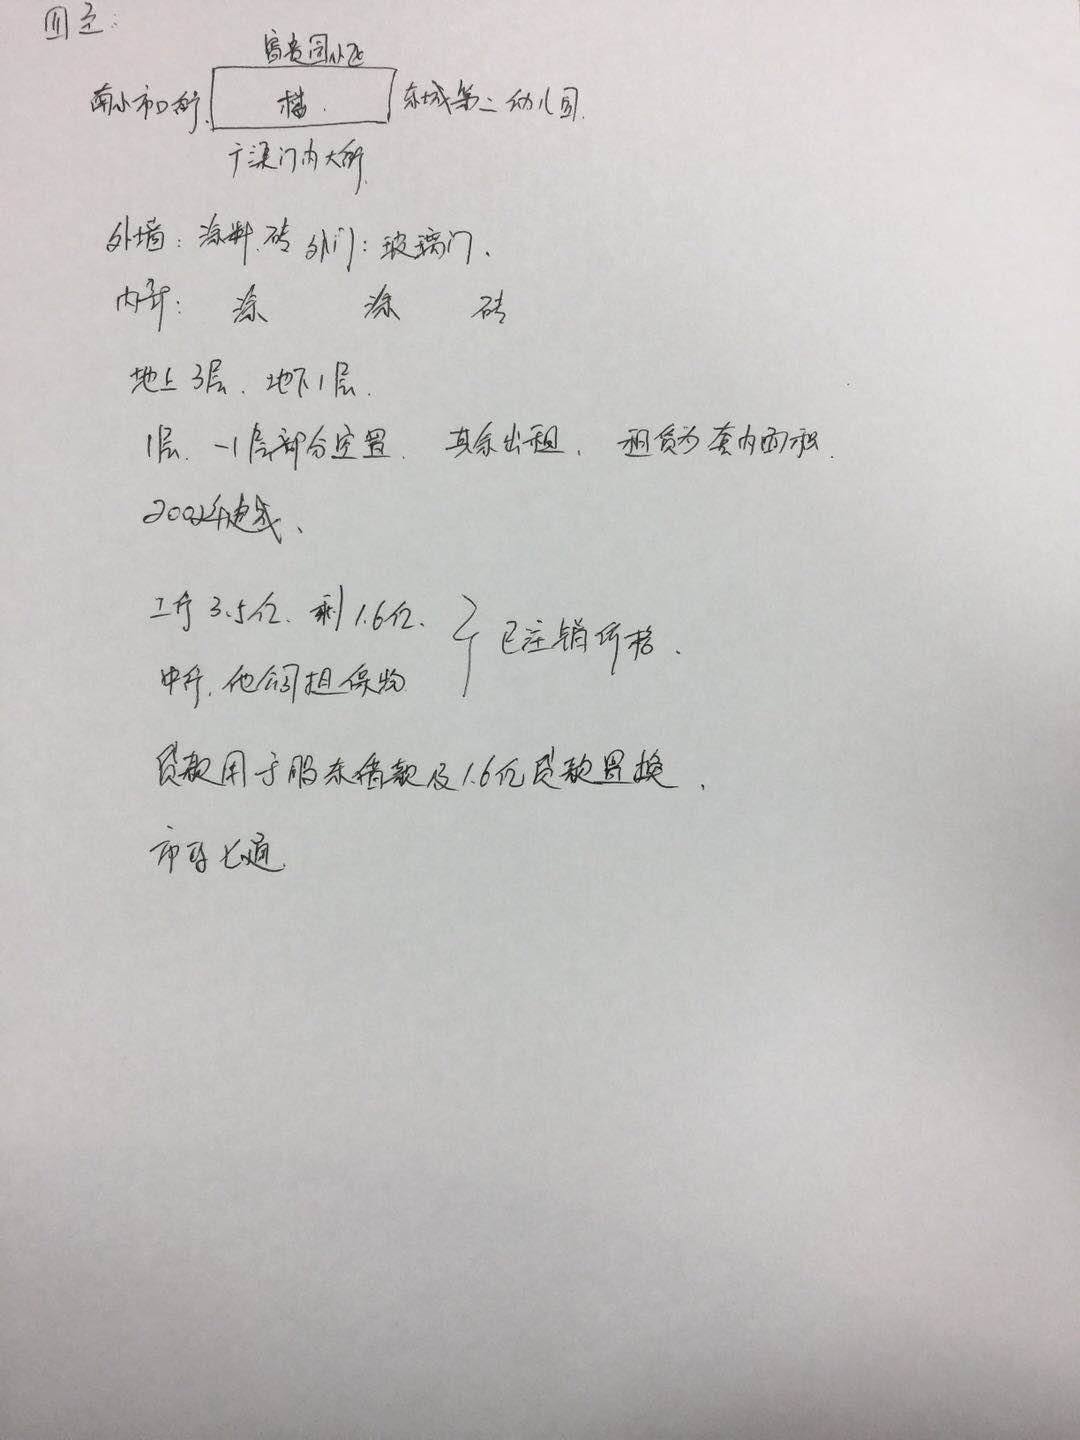 四至:
富贵园小区
南小市口街 楼. 东城第二幼儿园.
广渠门内大街
外墙: 涂料、砖 外门: 玻璃门、
内部: 涂 涂 砖
地上3层、地下1层.
1层、-1层部分空置. 其余出租. 租赁为套内面积.
建成、
工行3.5亿、剩1.6亿、
中行、他公司担保物
已注销价格.
贷款用于股东借款及1.6亿贷款置换.
市政七通